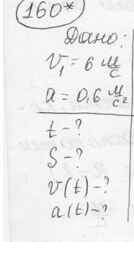 160*
Дано:
V₁ = 6 м/с
a = 0,6 м/с²
t - ?
S - ?
v(t) - ?
a(t) - ?